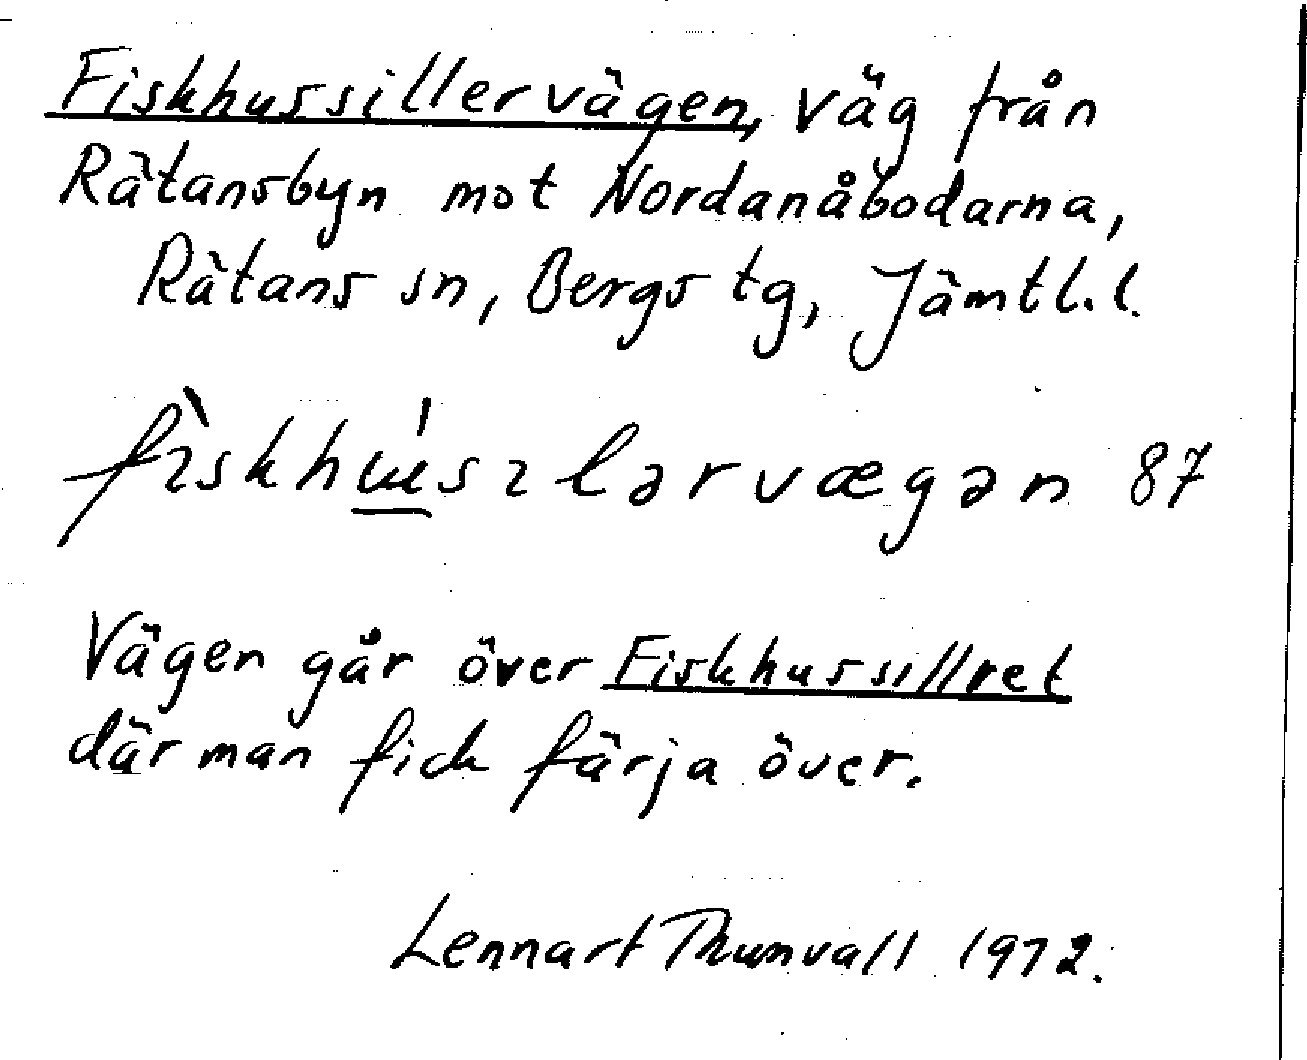 Fiskhussillervägen, väg från
Rätansbyn mot Nordanåbodarna,
Rätans sn, Bergs tg, Jämtl.l.
fìskhú̲sɿlərvægən 87
Vägen går över Fiskhussillret
där man fick färja över.
Lennart Thunvall 1972.